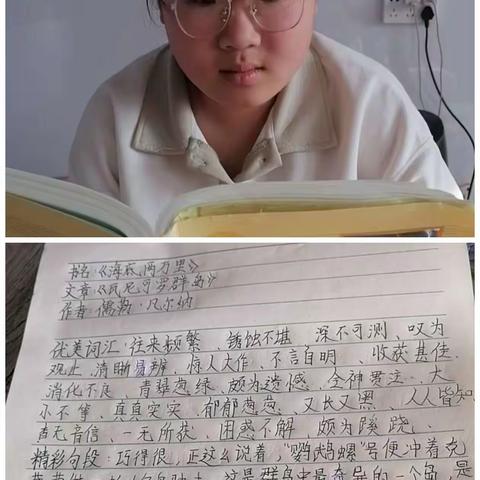 书名:《海底两万里》
文章:《瓦尼可罗群岛》
作者:儒勒·凡尔纳
优美词汇:往来频繁、锈蚀不堪、深不可测、叹为
观止、清晰易辨、惊人大作、不言自明、收获甚佳、
消化不良、青翠葱绿、颇为遗憾、全神贯注、大
小不等、真真实实、郁郁葱葱、又长又黑、人人皆知
杳无音信、一无所获、困惑不解、颇为蹊跷、
精彩句段:巧得很,正这么说着,“鹦鹉螺”号便冲着克
这是群岛中最奇异的一个岛,是